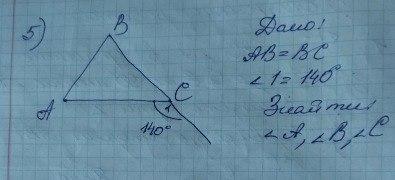 5)
B
A
C
1
140°
Дано:
AB = BC
∠1 = 140°
Знайти:
∠A, ∠B, ∠C